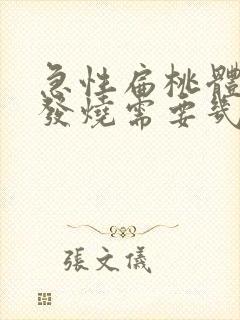 急性扁桃體
發燒需要幾
張文儀